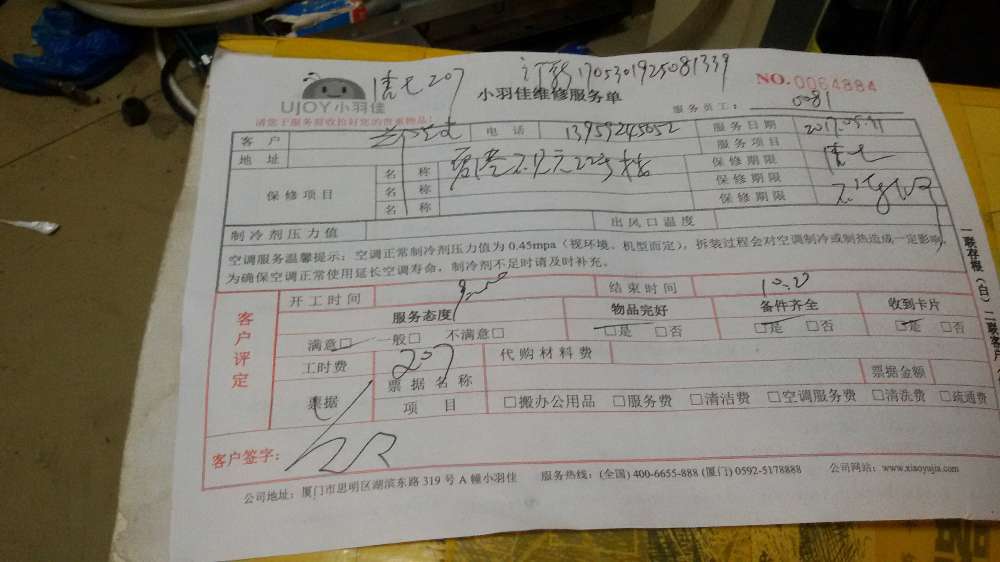 清七207
订单1705301925081339
NO.0064884
UJOY小羽佳
小羽佳维修服务单
服务员工: 0081
请您于服务前收拾好您的贵重物品!
客户 电话 13959245052 服务日期
地址 服务项目
保修项目 名称 保修期限
名称 保修期限
名称 保修期限
制冷剂压力值 出风口温度
空调服务温馨提示:空调正常制冷剂压力值为0.45mpa(视环境、机型而定),拆装过程会对空调制冷或制热造成一定影响,
为确保空调正常使用延长空调寿命,制冷剂不足时请及时补充。
客户评定
开工时间 结束时间
服务态度 物品完好 备件齐全 收到卡片
满意□ 一般□ 不满意□ □是 □否 □是 □否 □是 □否
工时费 207 代购材料费
票据 票据名称 票据金额
项目 □搬办公用品 □服务费 □清洁费 □空调服务费 □清洗费 □疏通费
客户签字:
公司地址:厦门市思明区湖滨东路319号A幢小羽佳 服务热线:(全国)400-6655-888 (厦门)0592-5178888 公司网站:www.xiaoyujia.com
一联存根(白)二联客户